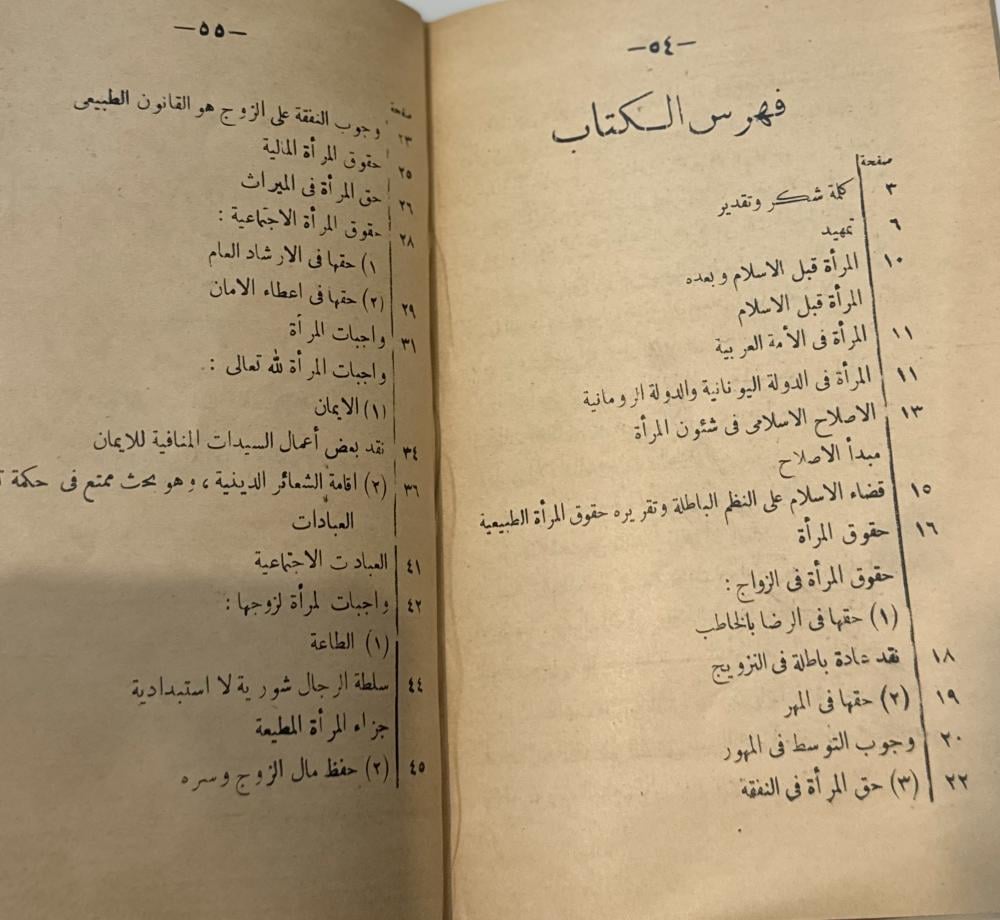 —٥٤—
فهرس الكتاب
صفحة
٣ كلمة شكر وتقدير
٦ تمهيد
١٠ المرأة قبل الاسلام وبعده
المرأة قبل الاسلام
١١ المرأة فى الأمة العربية
١١ المرأة فى الدولة اليونانية والدولة الرومانية
١٣ الاصلاح الاسلامى فى شئون المرأة
مبدأ الاصلاح
١٥ قضاء الاسلام على النظم الباطلة وتقريره حقوق المرأة الطبيعية
١٦ حقوق المرأة
حقوق المرأة فى الزواج :
(١) حقها فى الرضا بالخاطب
١٨ نقد عادة باطلة فى التزويج
١٩ (٢) حقها فى المهر
٢٠ وجوب التوسط فى المهور
٢٢ (٣) حق المرأة فى النفقة
—٥٥—
صفحة
٢٣ وجوب النفقة على الزوج هو القانون الطبيعى
٢٥ حقوق المرأة المالية
٢٦ حق المرأة فى الميراث
٢٨ حقوق المرأة الاجتماعية :
١) حقها فى الارشاد العام
٢٩ (٢) حقها فى اعطاء الامان
٣١ واجبات المرأة
واجبات المرأة لله تعالى :
(١) الايمان
٣٤ نقد بعض أعمال السيدات المنافية للايمان
٣٦ (٢) اقامة الشعائر الدينية ، وهو بحث ممتع فى حكمة
العبادات
٤١ العبادت الاجتماعية
٤٢ واجبات لمرأة لزوجها :
(١) الطاعة
٤٤ سلطة الرجال شورية لا استبدادية
جزاء المرأة المطيعة
٤٥ (٢) حفظ مال الزوج وسره